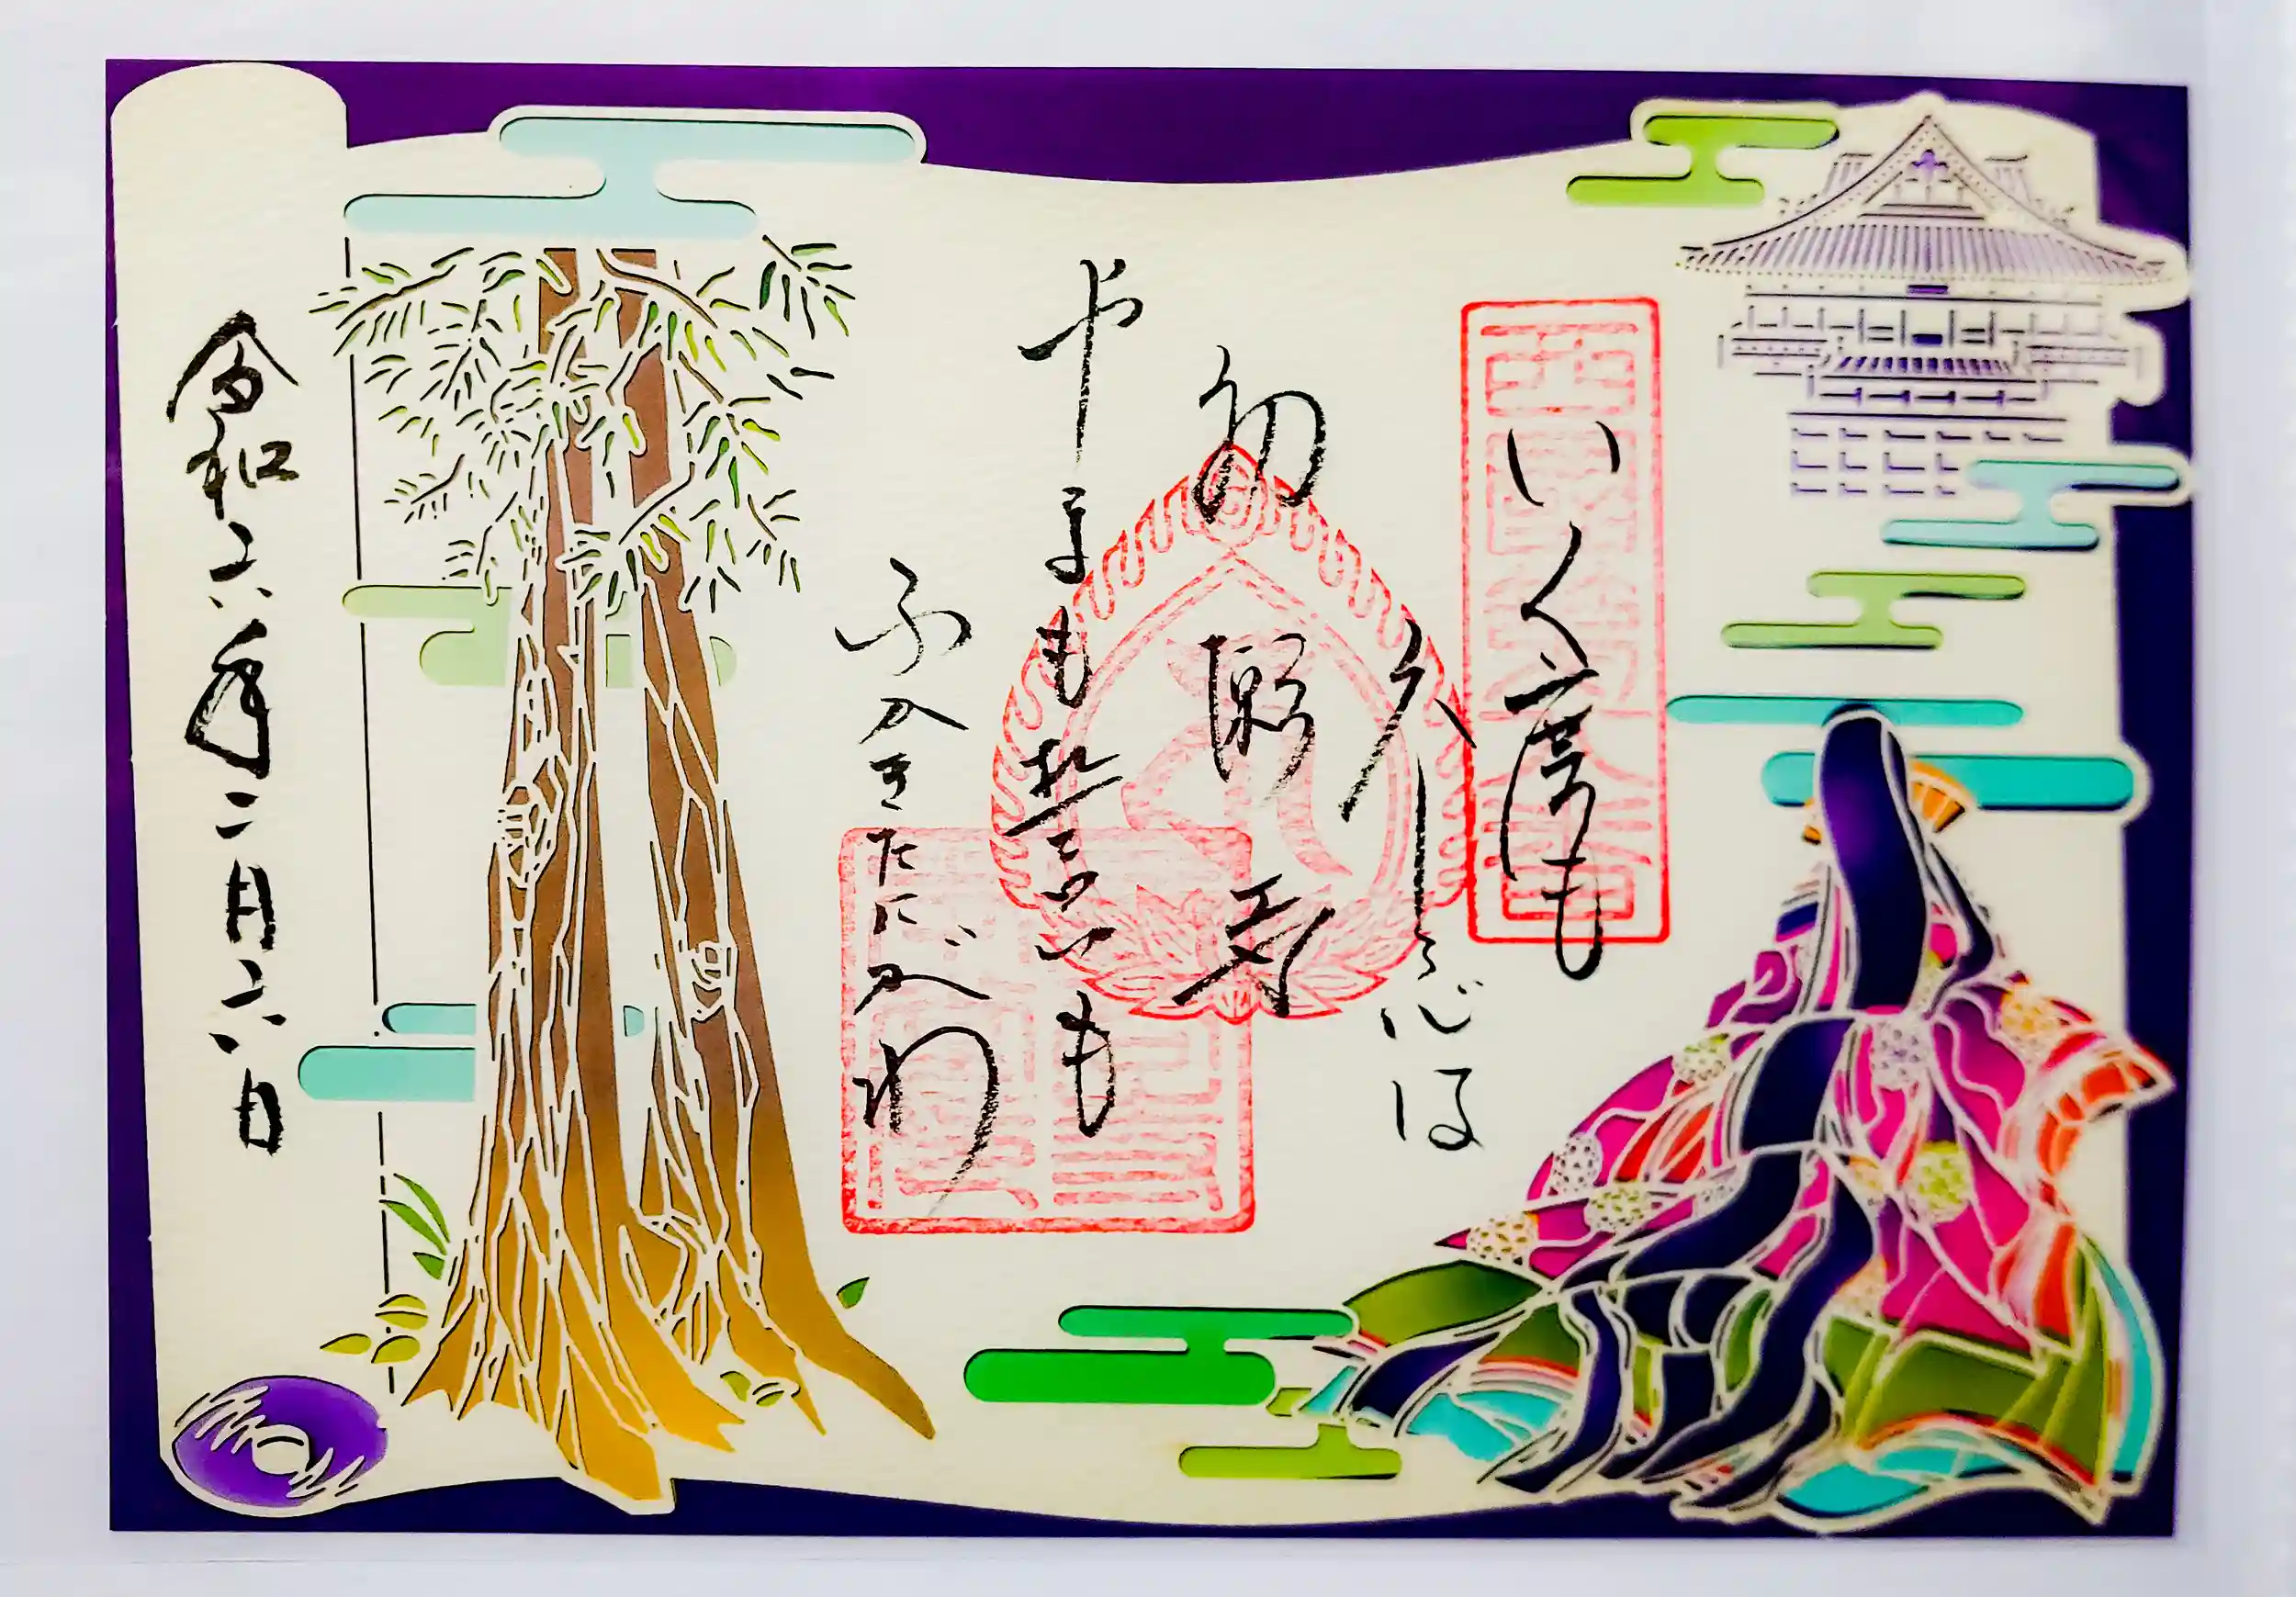 いく度も
参る心は
初瀬寺
やまも誓いも
ふかきたにがわ
令和六年二月六日